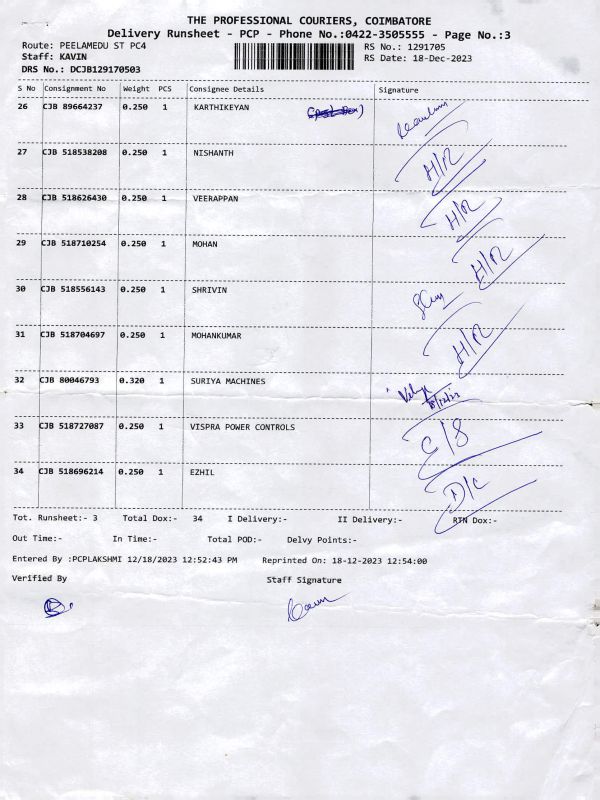 THE PROFESSIONAL COURIERS, COIMBATORE
Delivery Runsheet - PCP - Phone No.:0422-3505555 - Page No.:3
Route: PEELAMEDU ST PC4 RS No.: 1291705
Staff: KAVIN RS Date: 18-Dec-2023
DRS No.: DCJB129170503
S No Consignment No Weight PCS Consignee Details Signature
26 CJB 89664237 0.250 1 KARTHIKEYAN
27 CJB 518538208 0.250 1 NISHANTH H/R
28 CJB 518626430 0.250 1 VEERAPPAN H/R
29 CJB 518710254 0.250 1 MOHAN H/R
30 CJB 518556143 0.250 1 SHRIVIN
31 CJB 518704697 0.250 1 MOHANKUMAR H/R
32 CJB 80046793 0.320 1 SURIYA MACHINES
33 CJB 518727087 0.250 1 VISPRA POWER CONTROLS C/S
34 CJB 518696214 0.250 1 EZHIL D/C
Tot. Runsheet:- 3 Total Dox:- 34 I Delivery:- II Delivery:- RTN Dox:-
Out Time:- In Time:- Total POD:- Delvy Points:-
Entered By :PCPLAKSHMI 12/18/2023 12:52:43 PM Reprinted On: 18-12-2023 12:54:00
Verified By Staff Signature